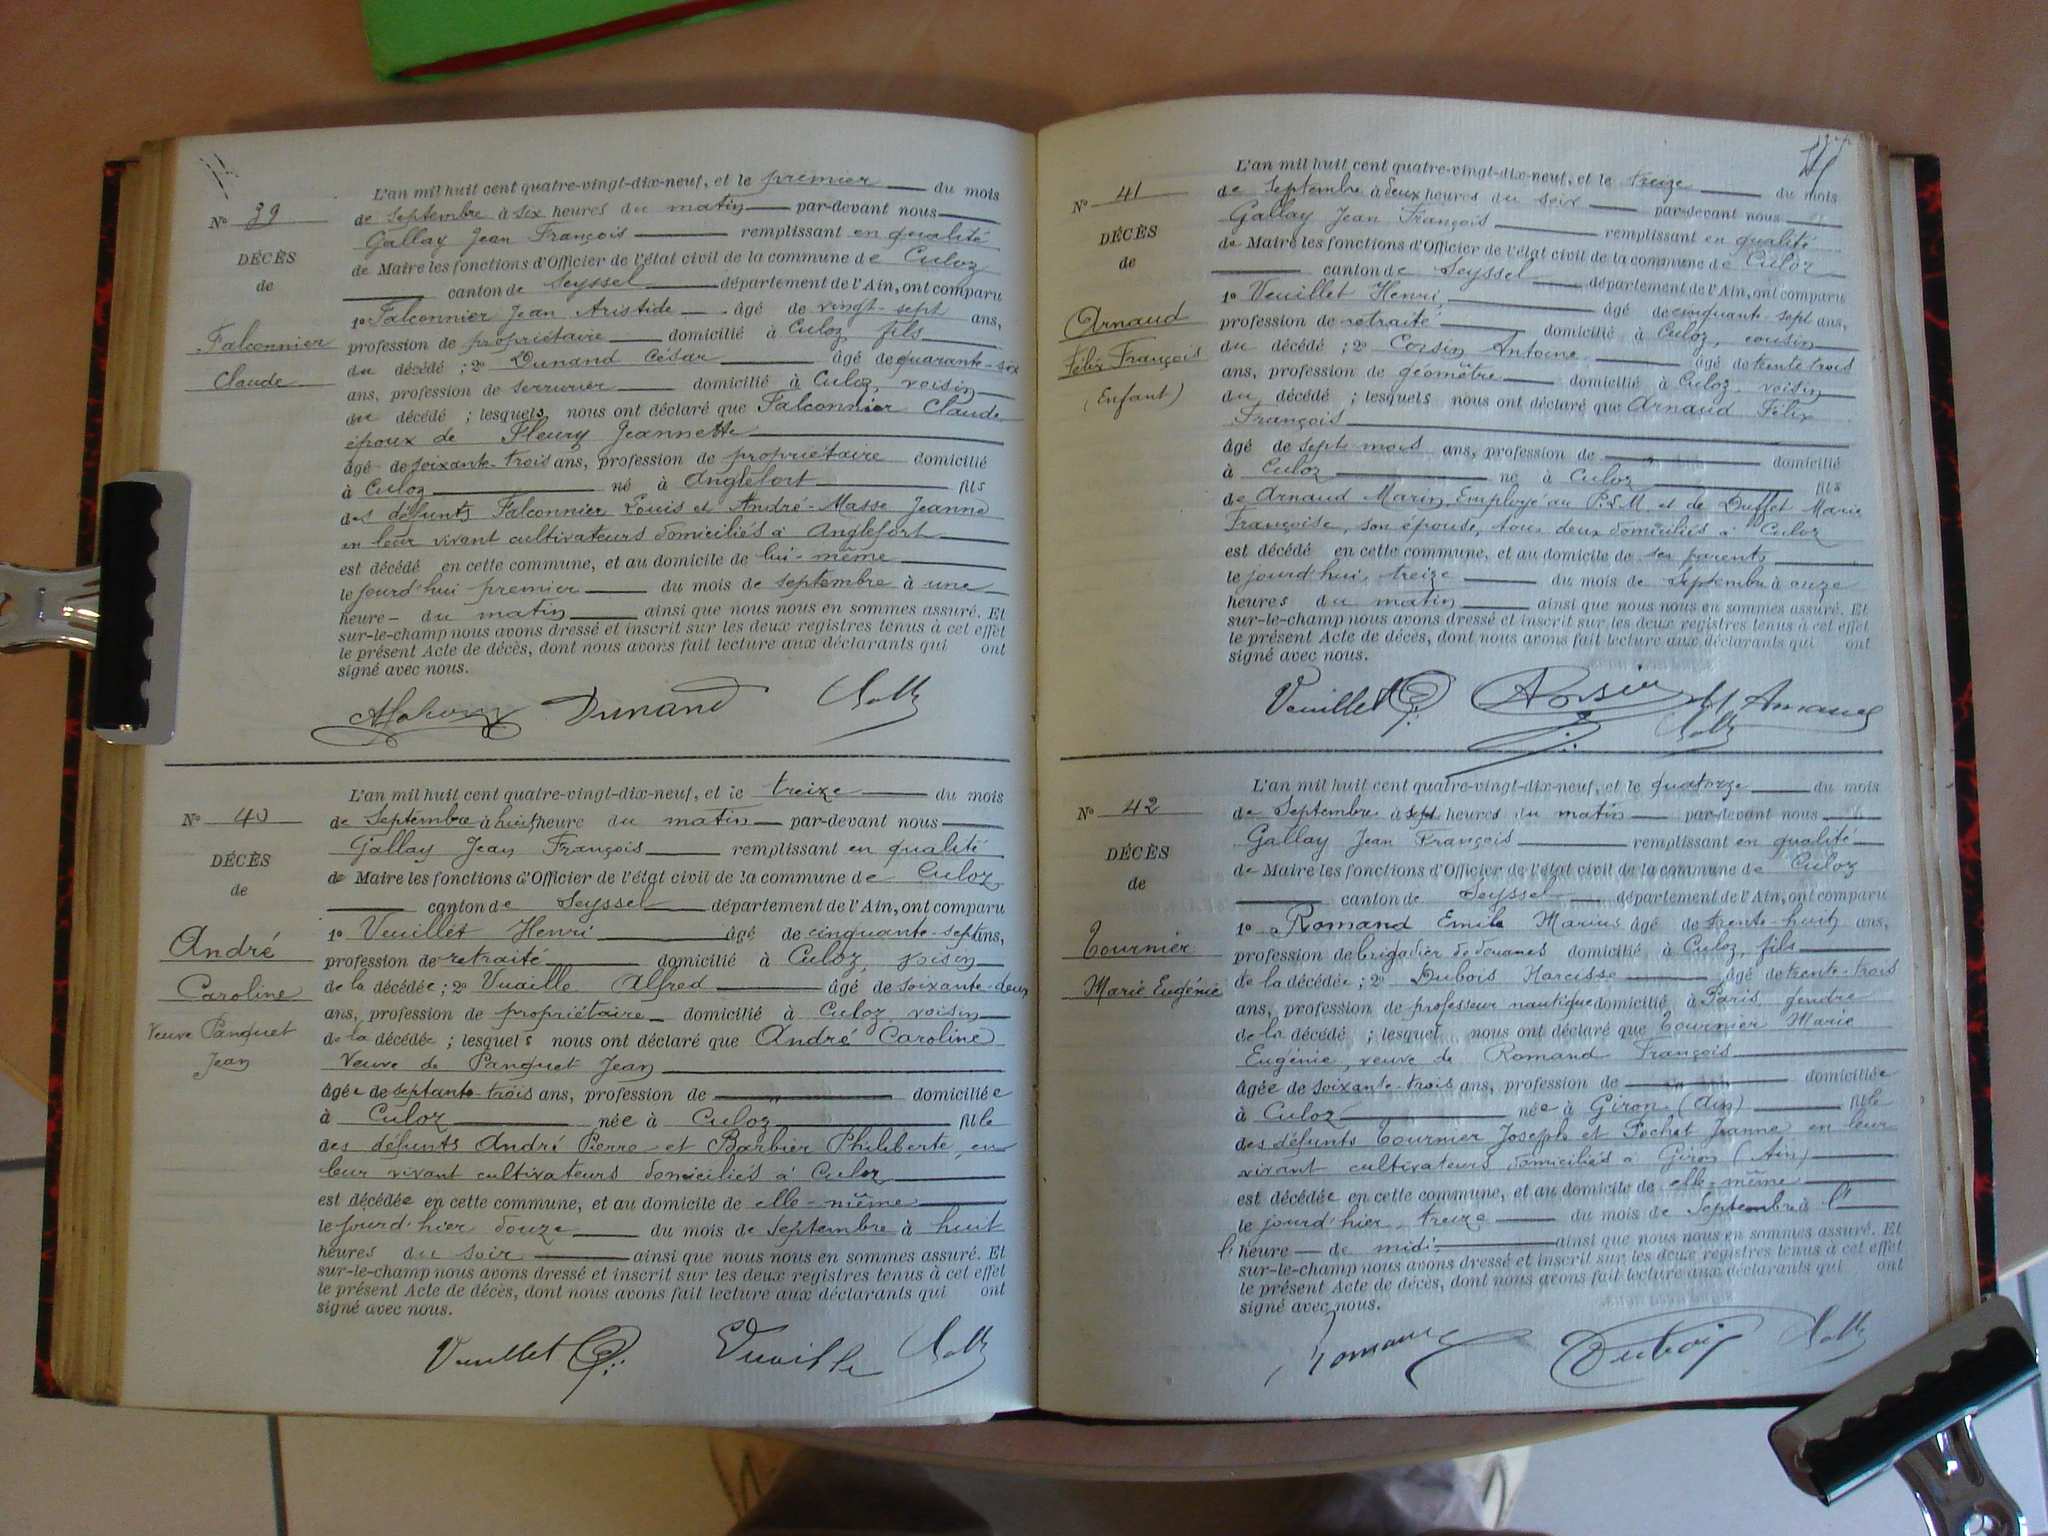 L'an mil huit cent quatre-vingt-dix-neuf, et le premier du mois
Nº 39
de septembre à six heures du matin par-devant nous
Gallay Jean François remplissant en qualité
DÉCÈS
de Maire les fonctions d'Officier de l'état civil de la commune de Culoz
de
canton de Seyssel département de l'Ain, ont comparu
1º Falconnier Jean Aristide âgé de vingt-sept ans,
Falconnier
profession de propriétaire domicilié à Culoz, fils
Claude
du décédé ; 2º Dunand César âgé de quarante-six
ans, profession de serrurier domicilié à Culoz, voisin
du décédé ; lesquels nous ont déclaré que Falconnier Claude
époux de Fleury Jeannette
âgé de soixante-trois ans, profession de propriétaire domicilié
à Culoz né à Anglefort fils
des défunts Falconnier Louis et André-Masse Jeanne
en leur vivant cultivateurs domiciliés à Anglefort
est décédé en cette commune, et au domicile de lui-même
le jourd'hui premier du mois de septembre à une
heure du matin ainsi que nous nous en sommes assuré. Et
sur-le-champ nous avons dressé et inscrit sur les deux registres tenus à cet effet
le présent Acte de décès, dont nous avons fait lecture aux déclarants qui ont
signé avec nous.
Dunand
L'an mil huit cent quatre-vingt-dix-neuf, et le treize du mois
Nº 40
de Septembre à huit heure du matin par-devant nous
Gallay Jean François remplissant en qualité
DÉCÈS
de Maire les fonctions d'Officier de l'état civil de la commune de Culoz
de
canton de Seyssel département de l'Ain, ont comparu
André
1º Veuillet Henri âgé de cinquante-sept ans,
profession de retraité domicilié à Culoz, voisin
Caroline
de la décédée ; 2º Vuaille Alfred âgé de soixante-deux
Veuve Panguet
ans, profession de propriétaire domicilié à Culoz voisin
Jean
de la décédée ; lesquels nous ont déclaré que André Caroline
Veuve de Panguet Jean
âgée de septante-trois ans, profession de domiciliée
à Culoz née à Culoz fille
des défunts André Pierre et Barbier Philiberte, en
leur vivant cultivateurs domiciliés à Culoz
est décédée en cette commune, et au domicile de elle-même
le jourd'hier douze du mois de septembre à huit
heures du soir ainsi que nous nous en sommes assuré. Et
sur-le-champ nous avons dressé et inscrit sur les deux registres tenus à cet effet
le présent Acte de décès, dont nous avons fait lecture aux déclarants qui ont
signé avec nous.
Veuillet Vuaille
L'an mil huit cent quatre-vingt-dix-neuf, et le treize du mois
Nº 41
de septembre à deux heures du soir par-devant nous
Gallay Jean François remplissant en qualité
DÉCÈS
de Maire les fonctions d'Officier de l'état civil de la commune de Culoz
de
canton de Seyssel département de l'Ain, ont comparu
1º Veuillet Henri, âgé de cinquante-sept ans,
Arnaud
profession de retraité domicilié à Culoz, cousin
Félix François
du décédé ; 2º Corsin Antoine âgé de trente trois
(Enfant)
ans, profession de géomètre domicilié à Culoz, voisin
du décédé ; lesquels nous ont déclaré que Arnaud Félix
François
âgé de sept mois ans, profession de domicilié
à Culoz né à Culoz fils
de Arnaud Marin, Employé au P.L.M. et de Buffet Marie
Françoise, son épouse, tous deux domiciliés à Culoz
est décédé en cette commune, et au domicile de ses parents
le jourd'hui treize du mois de septembre à onze
heures du matin ainsi que nous nous en sommes assuré. Et
sur-le-champ nous avons dressé et inscrit sur les deux registres tenus à cet effet
le présent Acte de décès, dont nous avons fait lecture aux déclarants qui ont
signé avec nous.
Veuillet
L'an mil huit cent quatre-vingt-dix-neuf, et le quatorze du mois
Nº 42
de Septembre à sept heures du matin par-devant nous
Gallay Jean François remplissant en qualité
DÉCÈS
de Maire les fonctions d'Officier de l'état civil de la commune de Culoz
de
canton de Seyssel département de l'Ain, ont comparu
1º Romand Emile Marius âgé de trente-huit ans,
Tournier
profession de brigadier de douanes domicilié à Culoz, fils
Marie Eugénie
de la décédée ; 2º Dubois Narcisse âgé de trente-trois
ans, profession de professeur nautique domicilié à Paris, gendre
de la décédé ; lesquels nous ont déclaré que Tournier Marie
Eugénie, veuve de Romand François
âgée de soixante-trois ans, profession de domiciliée
à Culoz née à Giron (Ain) fille
des défunts Tournier Joseph et Pochet Jeanne en leur
vivant cultivateurs domiciliés à Giron (Ain)
est décédée en cette commune, et au domicile de elle-même
le jourd'hier treize du mois de Septembre à l'
heure de midi ainsi que nous nous en sommes assuré. Et
sur-le-champ nous avons dressé et inscrit sur les deux registres tenus à cet effet
le présent Acte de décès, dont nous avons fait lecture aux déclarants qui ont
signé avec nous.
Dubois